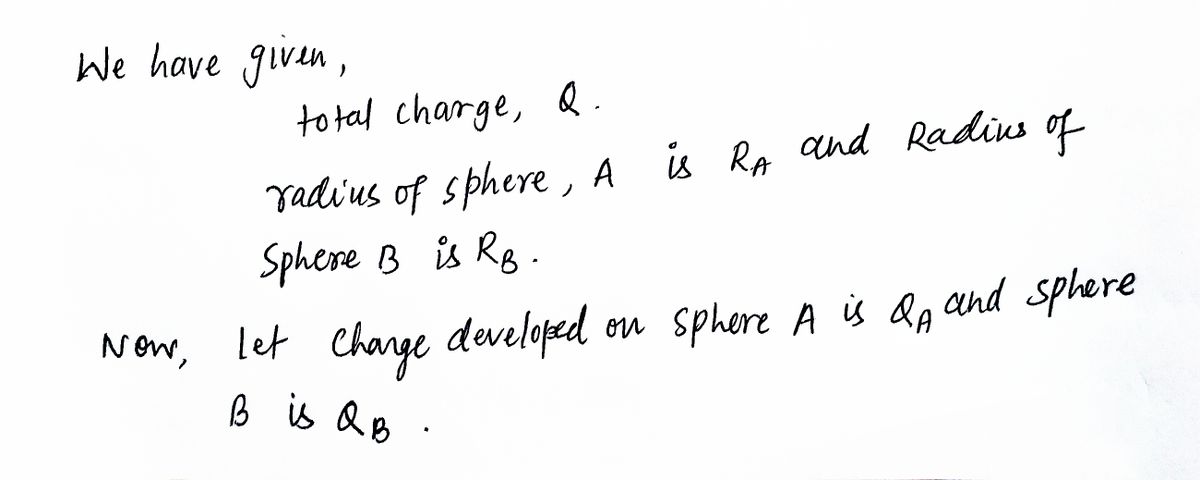 We have given,
total charge, Q.
radius of sphere, A is RA and Radius of
Sphere B is RB.
Now, let Charge developed on sphere A is QA and sphere
B is QB.